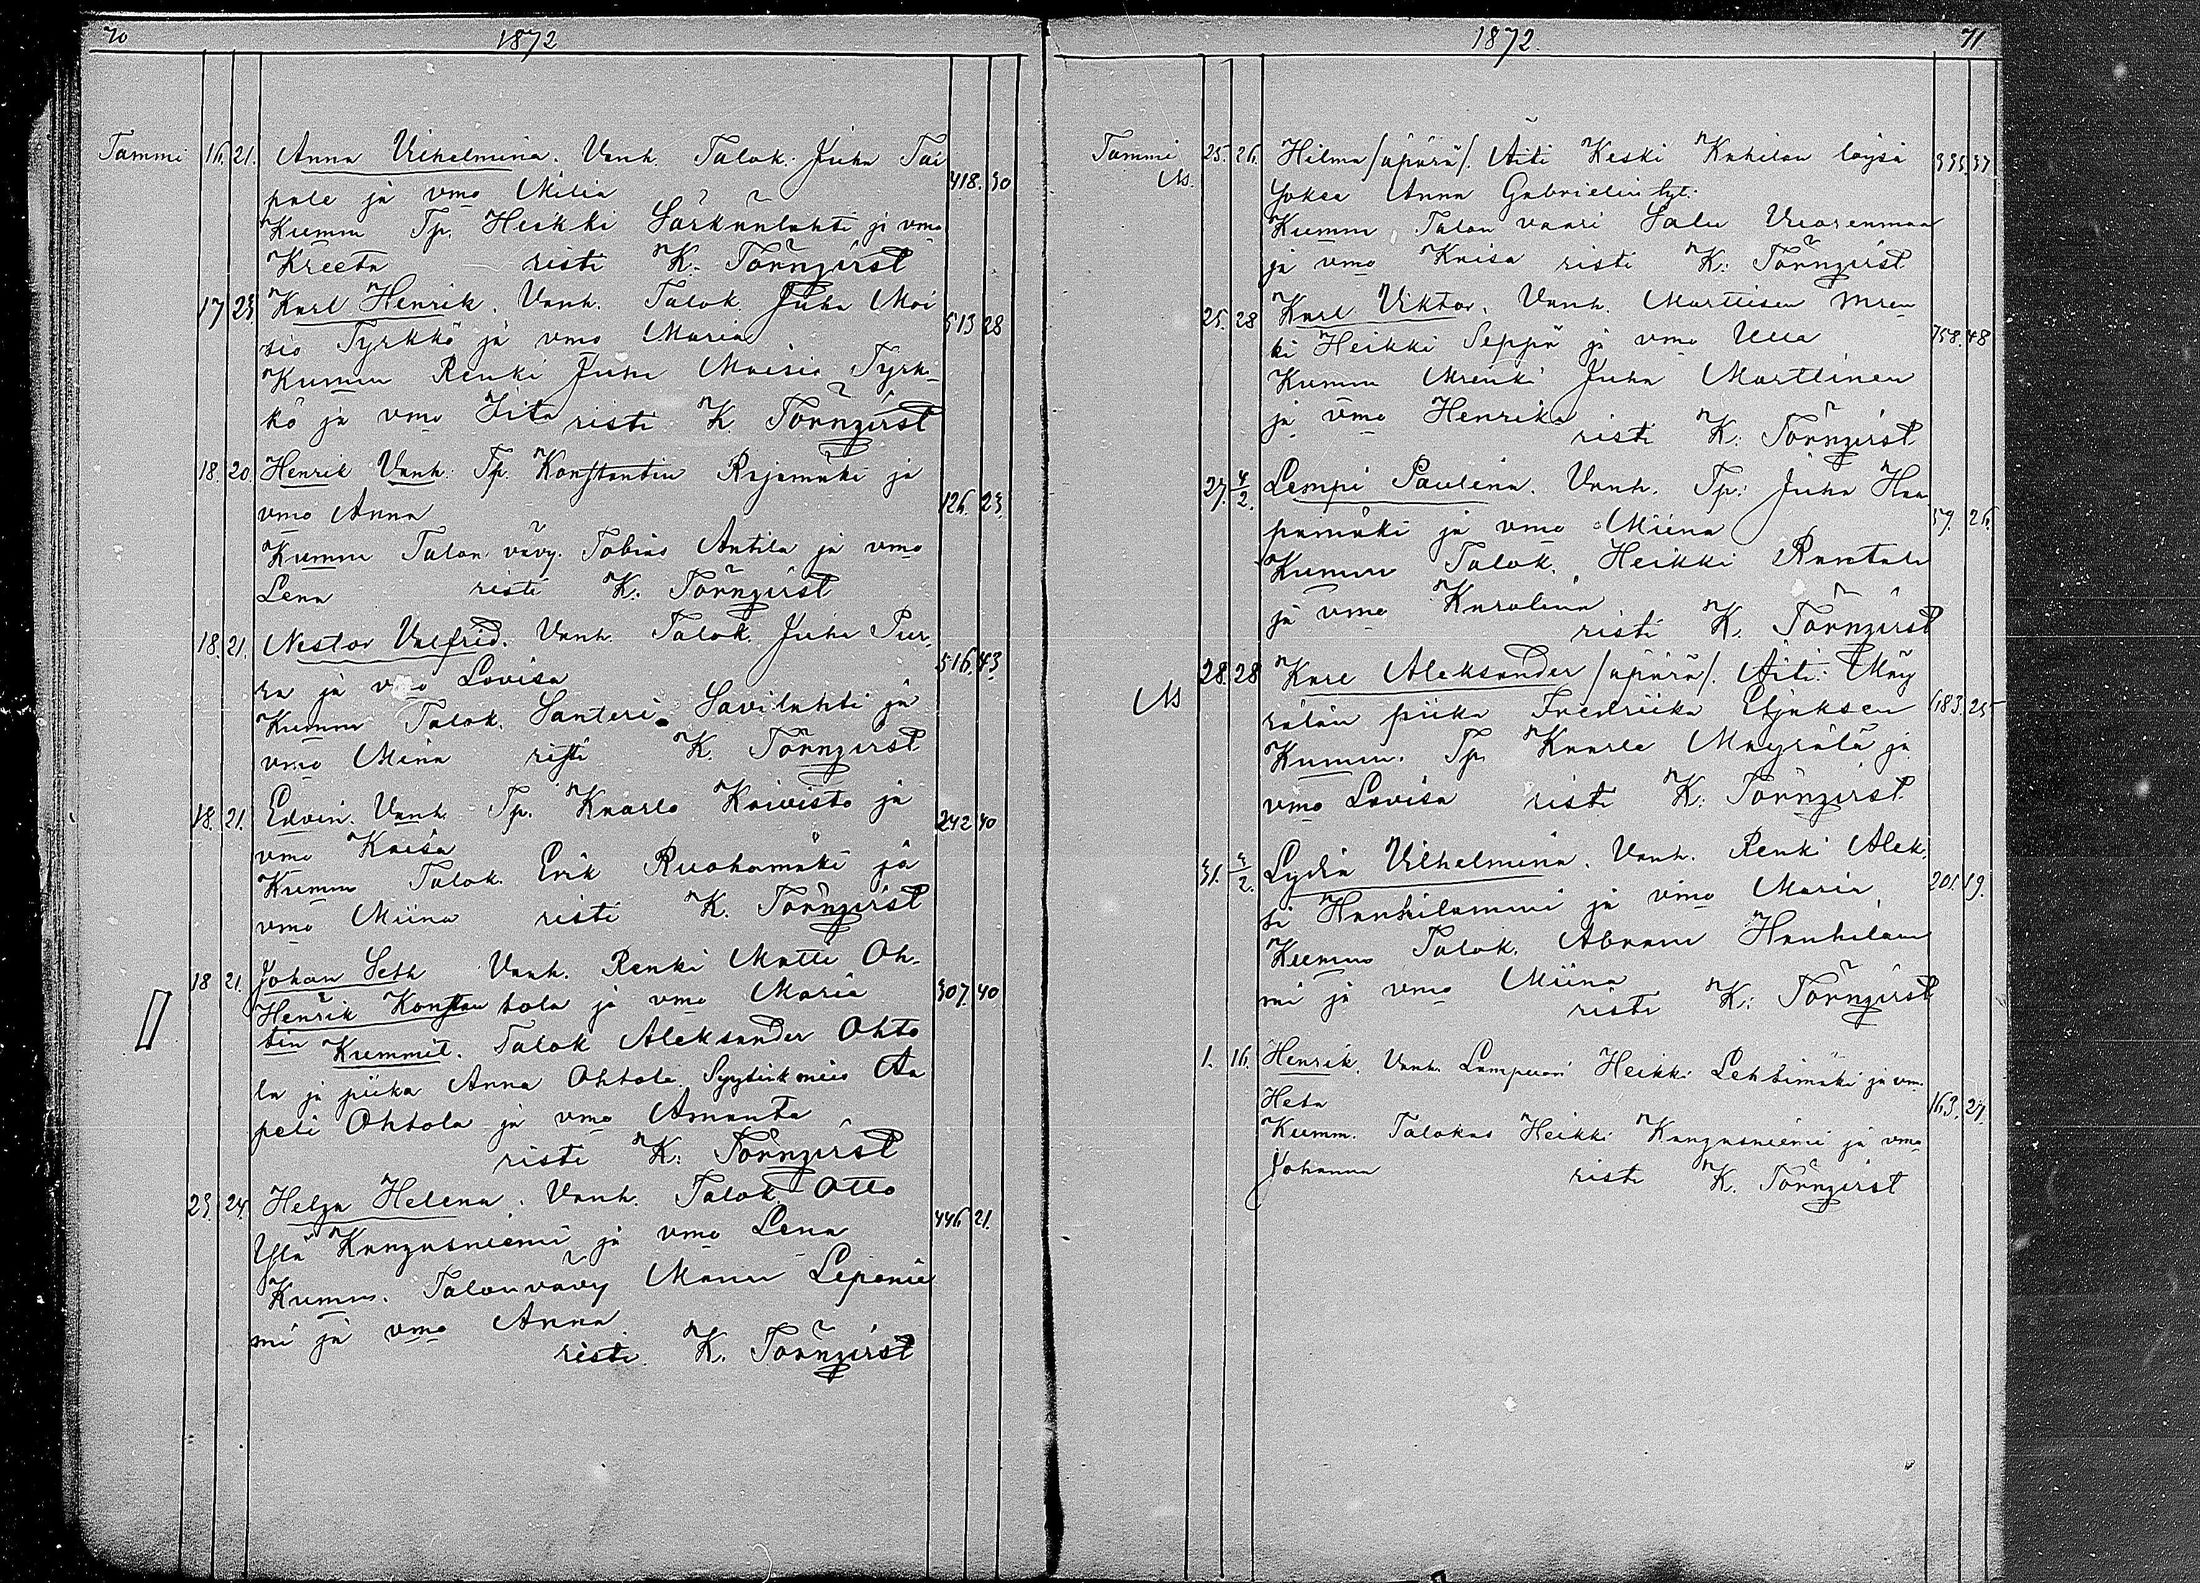 70
1872
Tammi 16. 21. Anna Vilhelmina. Vanh. Talok. Juha Tai
pale ja vmo Milia 418. 30
Kumm Tp. Heikki Särkänlahti ja vmo
Kreeta risti K. Törnqvist
17 23. Karl Henrik. Vanh. Talok. Juha Moi
sio Tyrkkö ja vmo Maria 513 28
Kumm Renki Juha Moisio Tyrk-
kö ja vmo Iita risti K. Törnqvist
18. 20. Henrik Vanh. Tp. Konstantin Rajamäki ja
vmo Anna 126. 23.
Kumm Talon vävy. Tobias Antila ja vmo
Lena risti K. Törnqvist
18. 21. Nestor Valfrid. Vanh. Talok. Juha Pur-
ra ja vmo Lovisa 516. 43.
Kumm Talok. Santeri Savilahti ja
vmo Mina risti K. Törnqvist
18. 21. Edvin. Vanh. Tp. Kaarlo Koivisto ja
vmo Kaisa 242 40
Kumm Talok. Erik Ruohomäki ja
vmo Miina risti K. Törnqvist
18 21. Johan Seth Vanh. Renki Matti Oh-
Henrik Konstan tola ja vmo Maria 307. 40
tin Kummit. Talok Aleksander Ohto
la ja piika Anna Ohtola. Syytinkmies Aa
peli Ohtola ja vmo Amanta
risti K. Törnqvist
23. 24. Helga Helena. Vanh. Talok. Otto
Ylä Kangasniemi ja vmo Lena 446 21.
Kumm. Talonvävy Manu Leponie
mi ja vmo Anna
risti K. Törnqvist
1872
71
Tammi 25. 26. Hilma /äpärä/. Äiti Keski Kahilan löysä 335 37
Ns. Jokea Anna Gabrielin tyt.
Kumm. Talon vaari Salu Vuorenmaa
ja vmo Kaisa risti K. Törnqvist
25. 28 Karl Viktor. Vanh. Marttisen mren
ki Heikki Seppä ja vmo Ulla 758. 48
Kumm Mrenki Juha Marttinen
ja vmo Henrika
risti K. Törnqvist
27. 4/2. Lempi Paulina. Vanh. Tp. Juha Haa
pamäki ja vmo Miina 57. 26.
Kumm Talok. Heikki Rantala
ja vmo Karolina
risti K. Törnqvist
28. 28 Karl Aleksander /äpärä/. Äiti: Mäy
Ns rälän piika Fredriika Eljaksen 683. 25
Kumm. Tp Kaarlo Mäyrälä ja
vmo Lovisa risti K. Törnqvist
31. 3/2. Lydia Vilhelmina. Vanh. Renki Alek-
si Hanhilammi ja vmo Maria 201. 19.
Kumm Talok. Abram Hanhilam
mi ja vmo Miina
risti K. Törnqvist
1. 16. Henrik. Vanh. Lampuori Heikki Lehtimäki ja vm.
Heta 163. 27.
Kumm. Talokas Heikki Kangasniemi ja vmo
Johanna risti K. Törnqvist